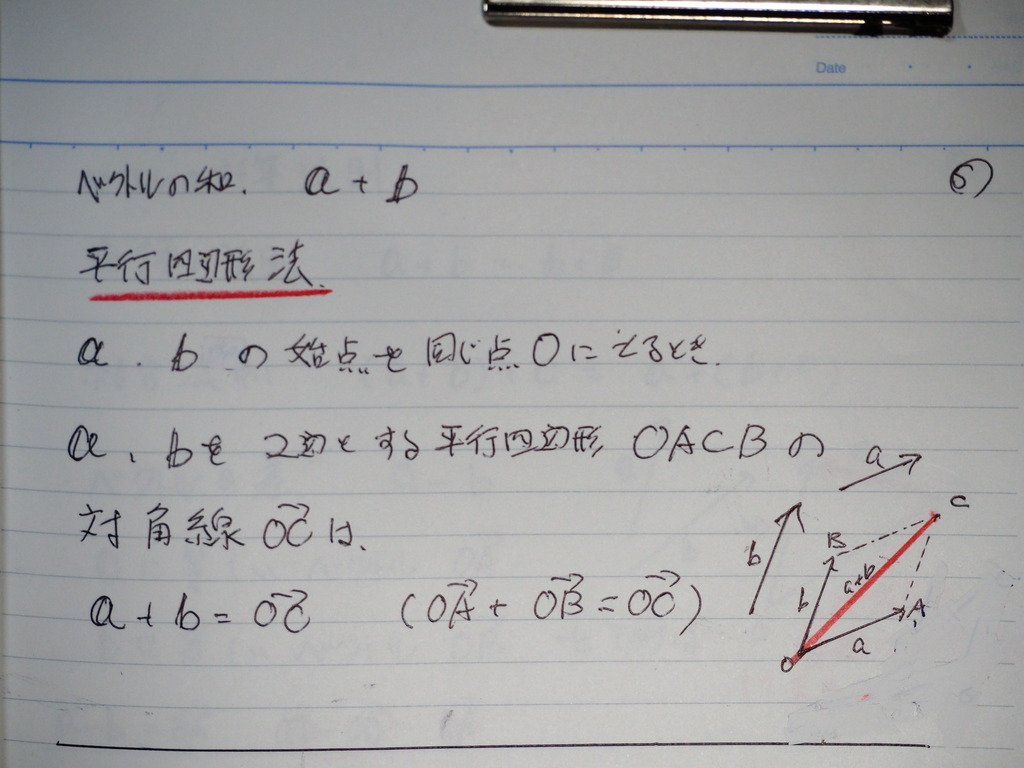 Date
ベクトルの和. a + b
⑤
平行四辺形法.
a. b の始点を同じ点Oにとるとき.
a、bを2辺とする平行四辺形 OACBの
対角線 OC→は、
a + b = OC→ (OA→ + OB→ = OC→)
a
b
B
C
b
a+b
A
a
O